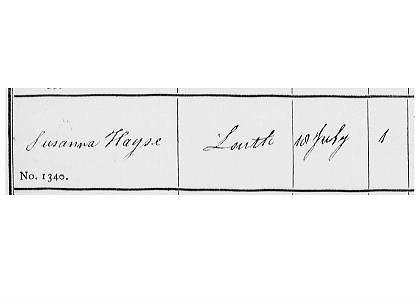 Susanna Hayse Louth 18 July 1
No. 1340.